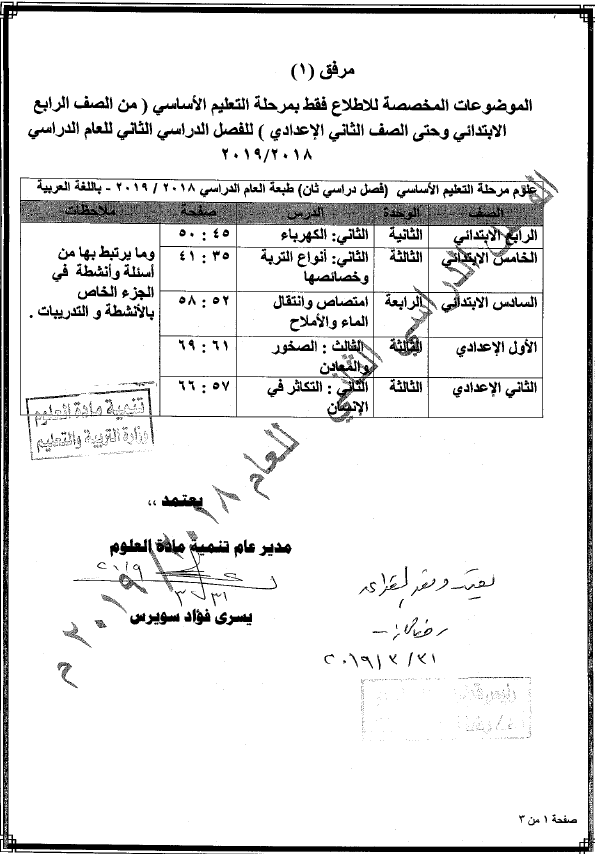 مرفق (١)
الموضوعات المخصصة للاطلاع فقط بمرحلة التعليم الأساسي ( من الصف الرابع
الابتدائي وحتى الصف الثاني الإعدادي ) للفصل الدراسي الثاني للعام الدراسي
٢٠١٩/٢٠١٨
علوم مرحلة التعليم الأساسي (فصل دراسي ثان) طبعة العام الدراسي ٢٠١٨ / ٢٠١٩ - باللغة العربية
الصف الوحدة الدرس صفحة ملاحظات
الرابع الابتدائي الثانية الثاني: الكهرباء ٤٥ : ٥٠
الخامس الابتدائي الثالثة الثاني: أنواع التربة وخصائصها ٣٥ : ٤١
السادس الابتدائي الرابعة امتصاص وانتقال الماء والأملاح ٥٢ : ٥٨
الأول الإعدادي الثالثة الثالث : الصخور والمعادن ٦١ : ٦٩
الثاني الإعدادي الثالثة الثاني : التكاثر في الإنسان ٥٧ : ٦٦
وما يرتبط بها من
أسئلة وأنشطة في
الجزء الخاص
بالأنشطة و التدريبات .
تنمية مادة العلوم
وزارة التربية والتعليم
الفصل الدراسي الثاني للعام ٢٠١٨/٢٠١٩ م
يعتمد ،،
مدير عام تنمية مادة العلوم
يسرى فؤاد سويرس
٢٠١٩/٣/٣١
صفحة ١ من ٣